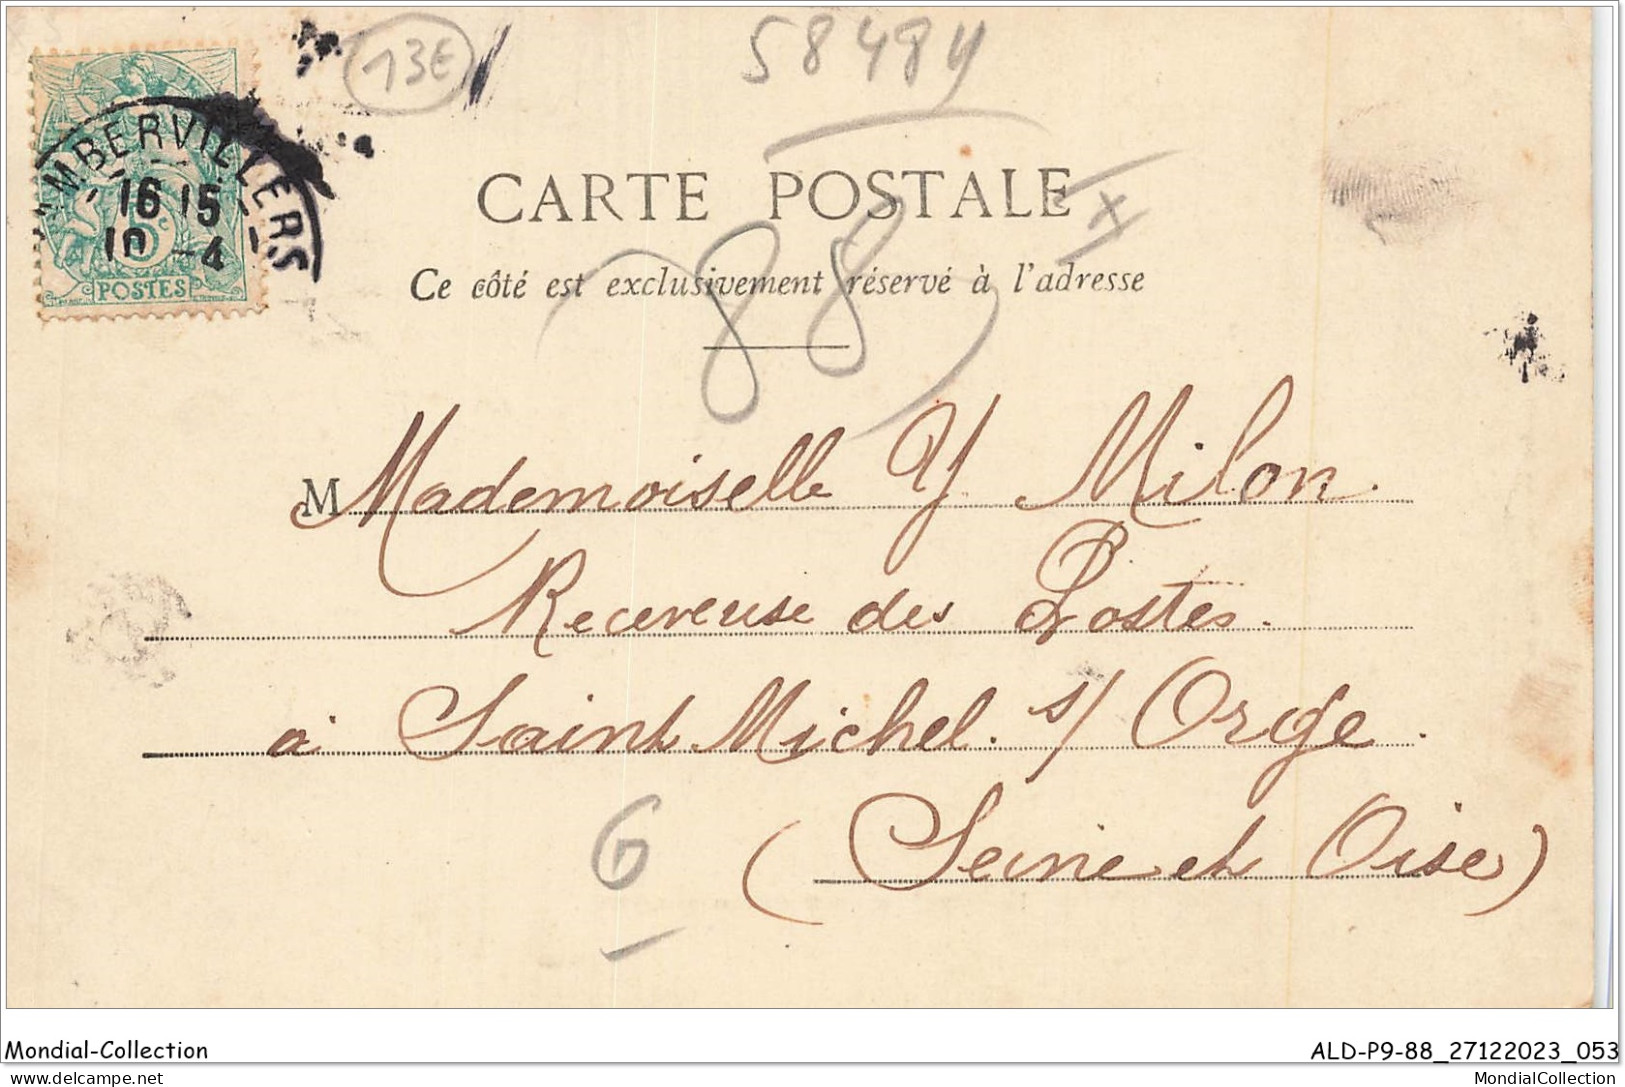 13€
58484
MBERVILLERS
16 15
10 -4
5c
POSTES
CARTE POSTALE
Ce côté est exclusivement réservé à l'adresse
88
x
M Mademoiselle Y Milon.
Receveuse des Postes.
à Saint Michel. s/ Orge.
(Seine et Oise)
G
Mondial-Collection
ALD-P9-88_27122023_053
MondialCollection